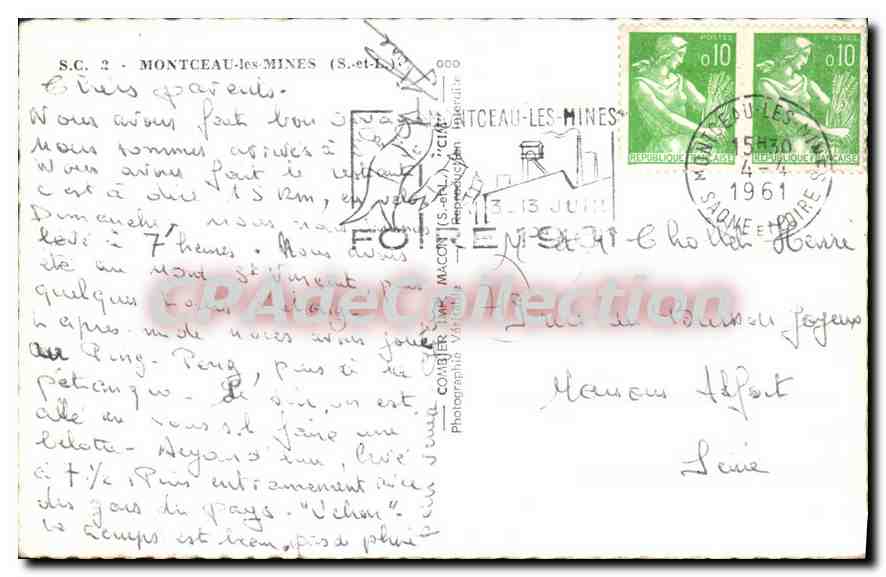 S.C. 2 - MONTCEAU-les-MINES (S.-et-L.)
Chers parents.
Nous avons fait bon voyage
Nous sommes arrivés à
Nous avons fait le restant
c'est à dire 15 km, en
Dimanche, nous nous sommes
levé à 7 heures. Nous avons
été au Mont St Vincent, puis
quelques
L'après-midi nous avons joué
au Ping-Pong, puis à la
pétanque. Le soir, on est
allé faire une
belote. Aujourd'hui, levé
à 7 1/2. Puis entrainement avec
des gars du pays. "Uchon".
Le temps est beau, pas de pluie
COMBIER IMP. MACON (S.-et-L.) "CIM"
Photographie Véritable - Reproduction Interdite
MONTCEAU-LES-MINES
3-13 JUIN
FOIRE 1961
POSTES
0,10
REPUBLIQUE FRANÇAISE
POSTES
0,10
REPUBLIQUE FRANÇAISE
MONTCEAU-LES-MINES
15H30
4-4
1961
SAONE ET LOIRE
M et Mme Henri
Buisson Joyeux
Maisons Alfort
Seine
CPAdeCollection